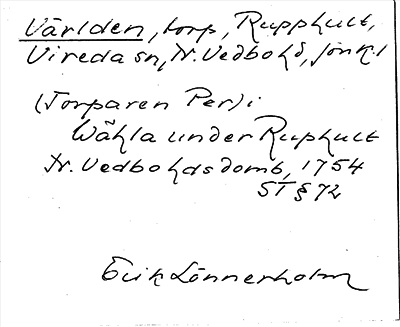 Världen, torp, Rupphult,
Vireda sn, N. Vedbo hd, Jönk.l
(Torparen Per) i
Wähla under Ruphult
N. Vedbo hds domb, 1754
ST § 72
Erik Lönnerholm